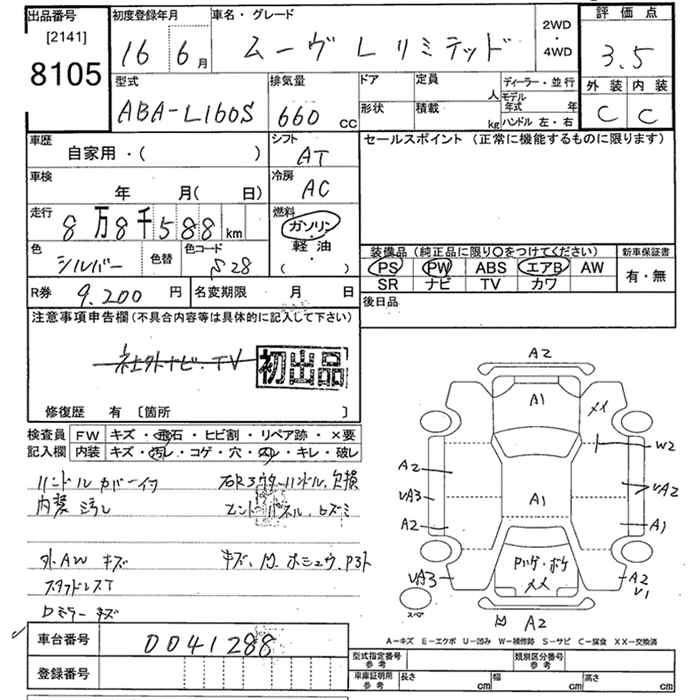 出品番号 初度登録年月 車名・グレード 2WD・4WD 評価点
[2141]
8105 16 6月 ムーヴ Lリミテッド 3.5
外装 内装
C C
型式 排気量 ドア 定員 人 ディーラー・並行
ABA-L160S 660 CC 形状 積載 kg モデル年式 年
ハンドル 左・右
車歴 シフト セールスポイント (正常に機能するものに限ります)
自家用・( ) AT
車検 冷房
年 月( 日) AC
走行 燃料
8万8千588 km ガソリン・軽油
( ・ )
色 色替 色コード
シルバー S28
装備品 (純正品に限り○をつけてください) 新車保証書
PS PW ABS エアB AW 有・無
SR ナビ TV カワ
R券 9.200 円 名変期限 月 日
後日品
注意事項申告欄(不具合内容等は具体的に記入して下さい)
社外ナビ・TV
初出品
修復歴 有 [箇所 ]
検査員 FW キズ・飛石・ヒビ割・リペア跡・×要
記入欄 内装 キズ・汚レ・コゲ・穴・スレ・キレ・破レ
ハンドルカバー
内装 汚れ
外.AW キズ キズ、凹
スタッドレスT
Dミラー キズ
A2
A1
メメ
W2
A2
VA3
VA2
A1
A2
A1
VA3
ハゲ・ボケ
メメ
A2
V1
スペア
凹 A2
A−キズ E−エクボ U−凹み W−補修跡 S−サビ C−腐食 XX−交換済
車台番号 0041288
登録番号
型式指定番号 参考 類別区分番号 参考
車庫証明用 参考 長さ cm 幅 cm 高さ cm